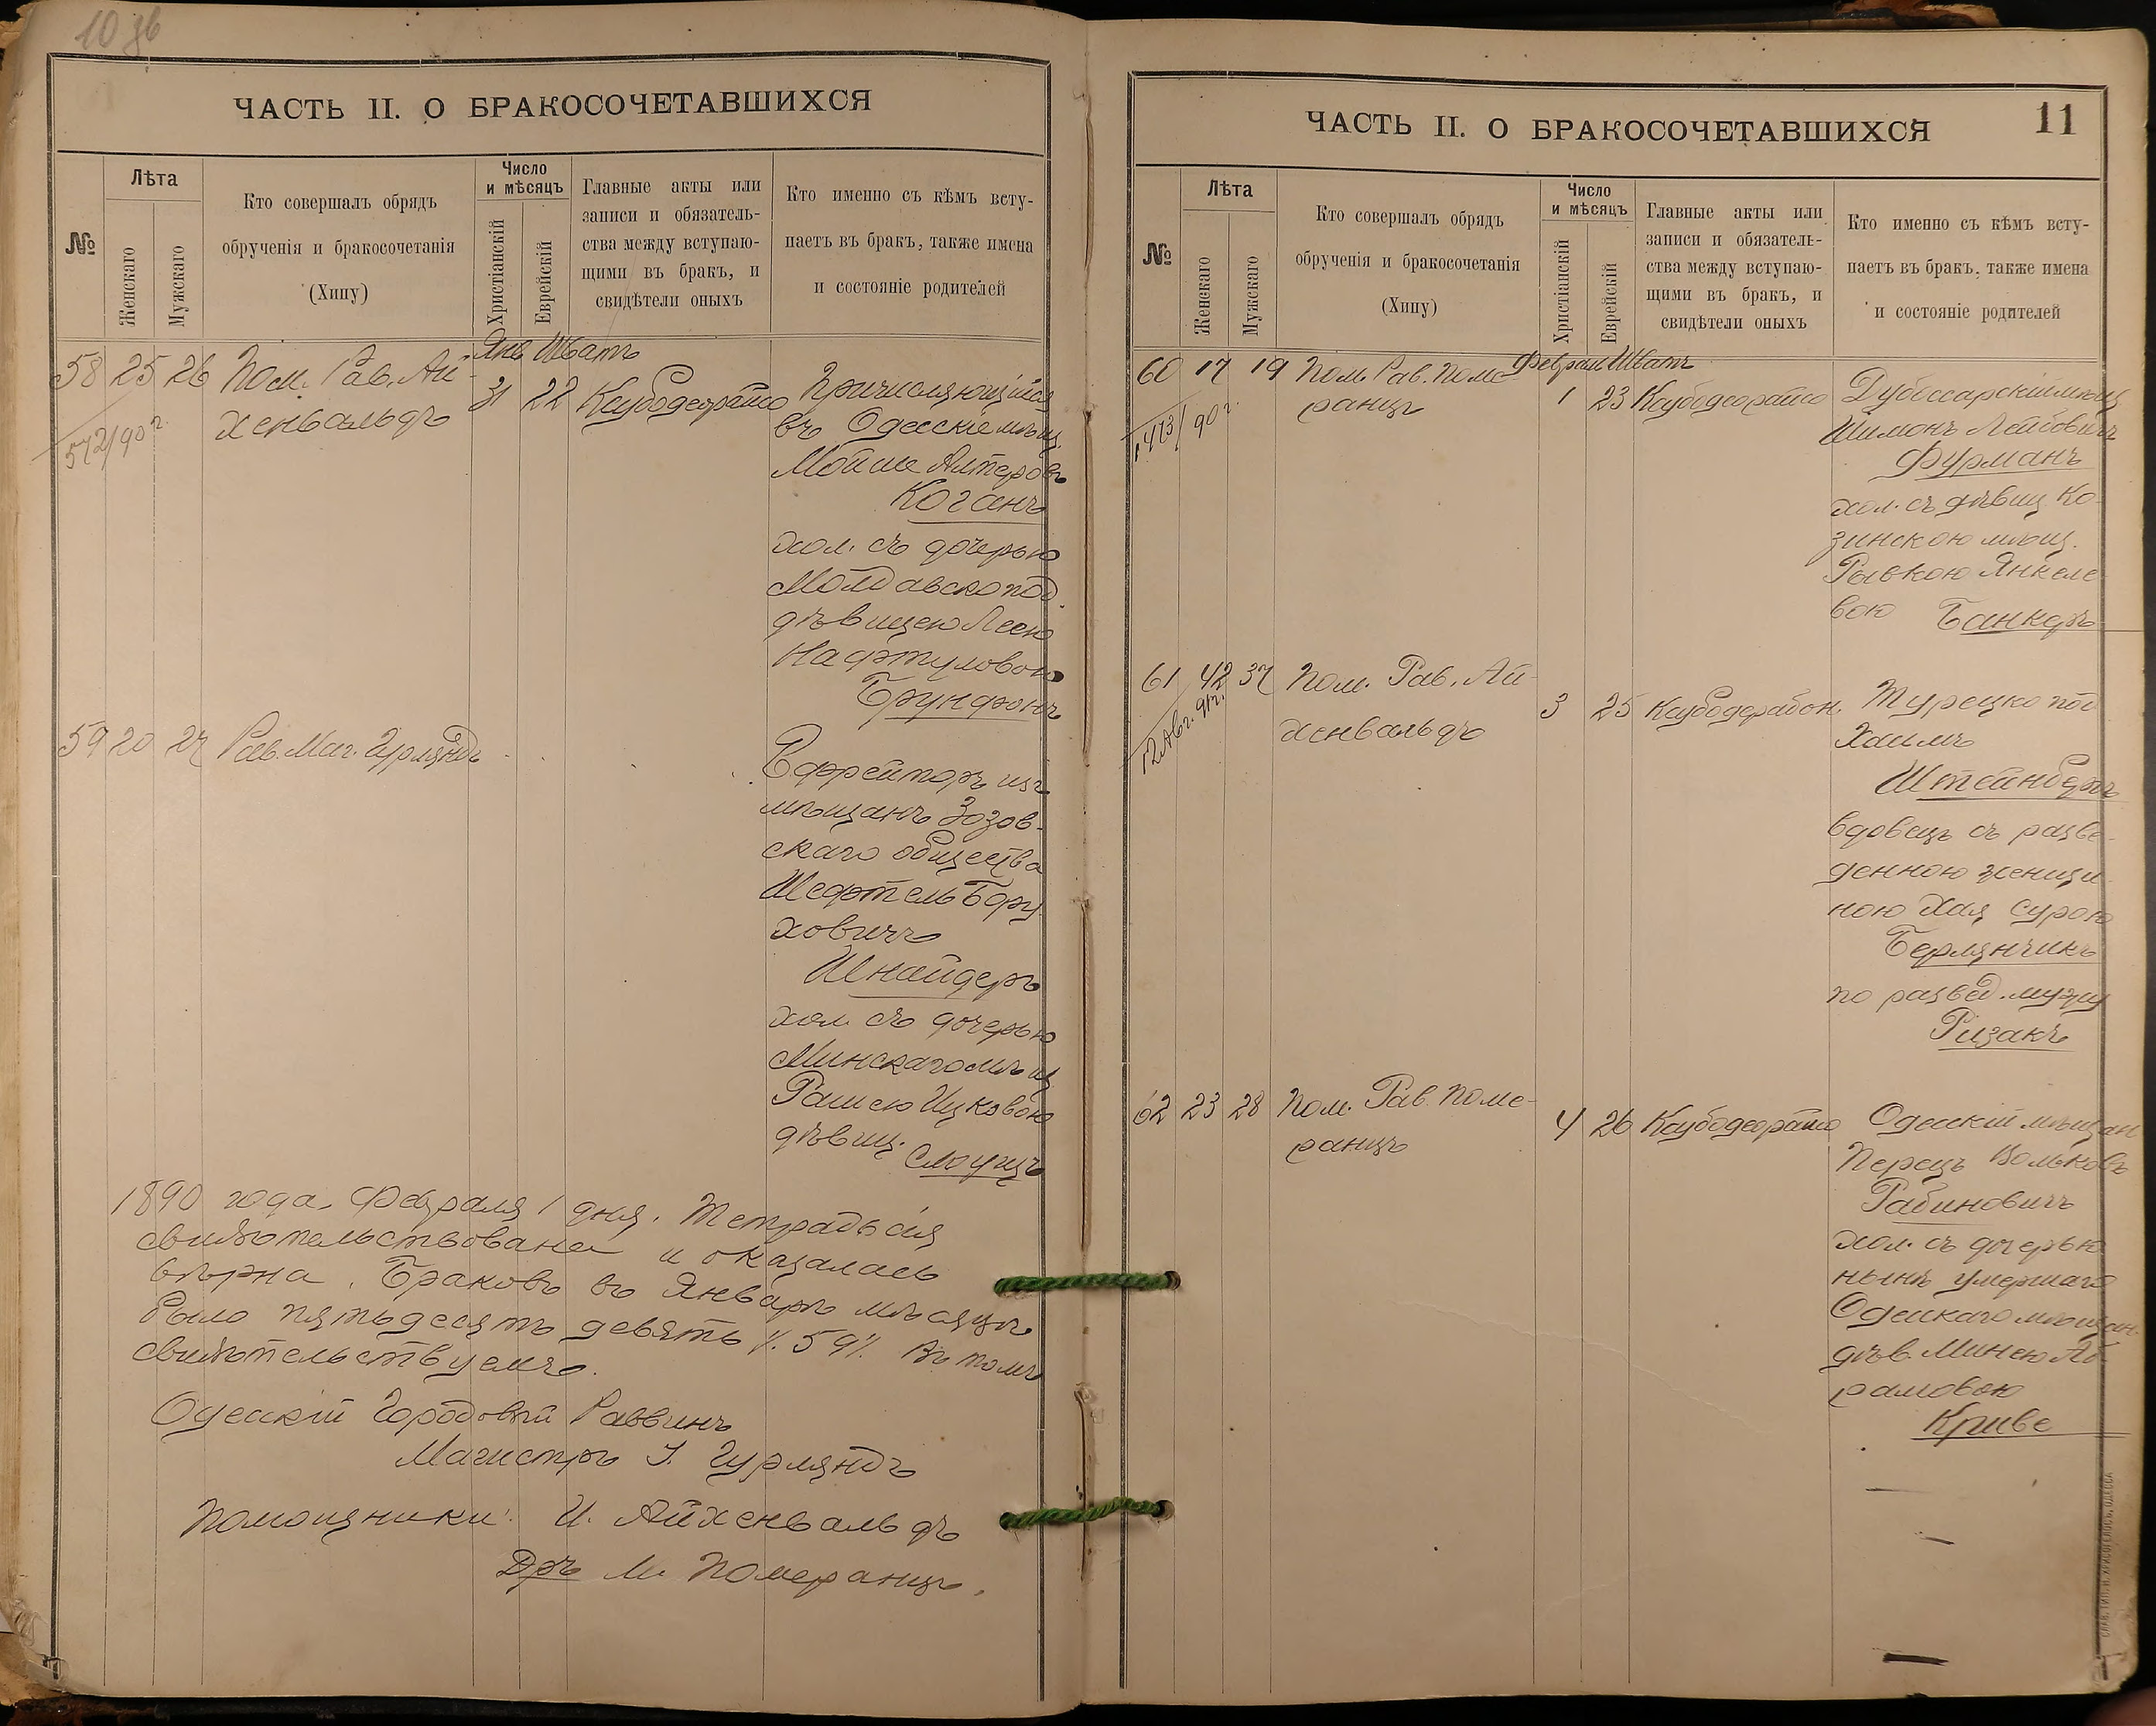 10 об
ЧАСТЬ II. О БРАКОСОЧЕТАВШИХСЯ
№
Лѣта
Женскаго
Мужскаго
Кто совершалъ обрядъ
обрученія и бракосочетанія
(Хипу)
Число
и мѣсяцъ
Христіанскій
Еврейскій
Главные акты или
записи и обязатель-
ства между вступаю-
щими въ бракъ, и
свидѣтели оныхъ
Кто именно съ кѣмъ всту-
паетъ въ бракъ, также имена
и состояніе родителей
Янв Шватъ
58 25 26 Пом. Рав. Ай-
хенвальдъ
572/90 г.
31 22
Причисляющійся
въ Одесскіе мѣщ.
Мойше Алтеровъ
Коганъ
хол. съ дочерью
Молдавскопод.
дѣвицею Леею
Нафтуловою
Брунфонъ
59 20 27 Рав. Маг. Гурляндъ
Ефрейторъ изъ
мѣщанъ Зозов-
скаго общества
Шефтель Бору
ховичъ
Шнайдеръ
хол. съ дочерью
Минскаго мѣщ
Рашею Ицковою
дѣвиц.
Слоущъ
1890 года. Февраля 1 дня. Тетрадь сія
свидѣтельствована и оказалась
вѣрна. Браковъ въ Январѣ мѣсяцѣ
было пятьдесятъ девять /. 59 /. Въ томъ
свидѣтельствуемъ.
Одесскій Городовой Раввинъ
Магистръ І. Гурляндъ
Помощники: И. Айхенвальдъ
Дръ М. Померанцъ.
11
ЧАСТЬ II. О БРАКОСОЧЕТАВШИХСЯ
№
Лѣта
Женскаго
Мужскаго
Кто совершалъ обрядъ
обрученія и бракосочетанія
(Хипу)
Число
и мѣсяцъ
Христіанскій
Еврейскій
Главные акты или
записи и обязатель-
ства между вступаю-
щими въ бракъ, и
свидѣтели оныхъ
Кто именно съ кѣмъ всту-
паетъ въ бракъ, также имена
и состояніе родителей
Феврал Шватъ
60 17 19 Пом. Рав. Поме-
ранцъ
1473/90 г.
1 23
Дубоссарскій мѣщ
Шимонъ Лейбовичъ
Фурманъ
хол. съ дѣвиц Ко-
зинскою мѣщ.
Рывкою Янкеле
вою Банкеръ
61 42 37 Пом. Рав. Ай-
хенвальдъ
12 Авг. 91 г.
3 25
Турецко под
Хаимъ
Штейнбергъ
вдовецъ съ разве-
денною женщи-
ною Хая Сурою
Берлянчикъ
по развед. мужу
Ризакъ
62 23 28 Пом. Рав. Поме-
ранцъ
4 26
Одесскій мѣщан
Перецъ Вольковъ
Рабиновичъ
хол. съ дочерью
нынѣ умершаго
Одесскаго мѣщан.
дѣв. Минею Аб-
рамовою
Криве
СЛАВ. ТИП. Н. ХРИСОГЕЛОСЪ, ОДЕССА